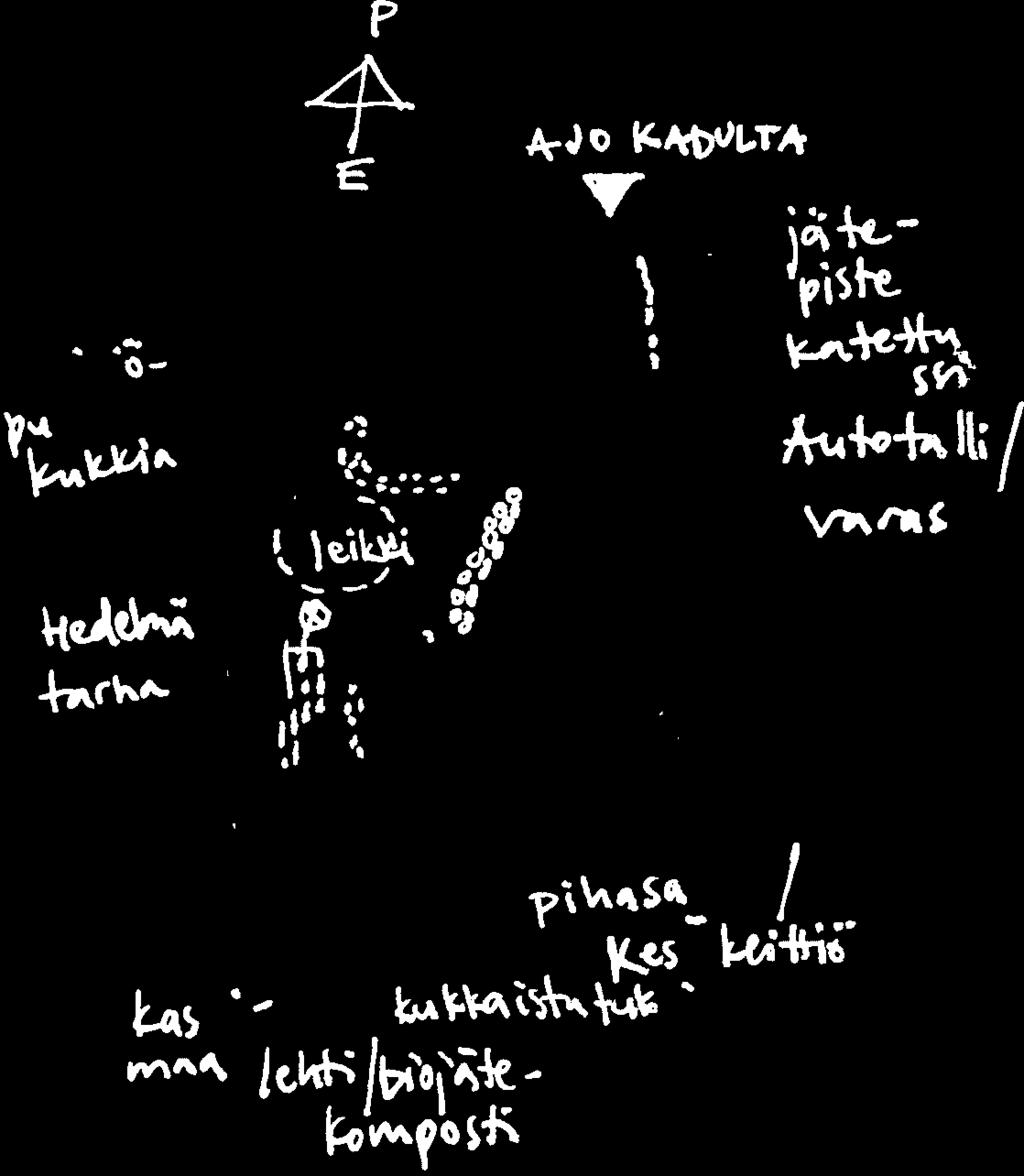 P
E
AJO KADULTA
jäte-
piste
katettu
ssä
Autotalli/
varas
ö-
pu
kukkia
leikki
Hedelmä
tarha
pihasa
kes - keittiö
kukkaistutuk
kas -
maa
lehti/biojäte-
komposti